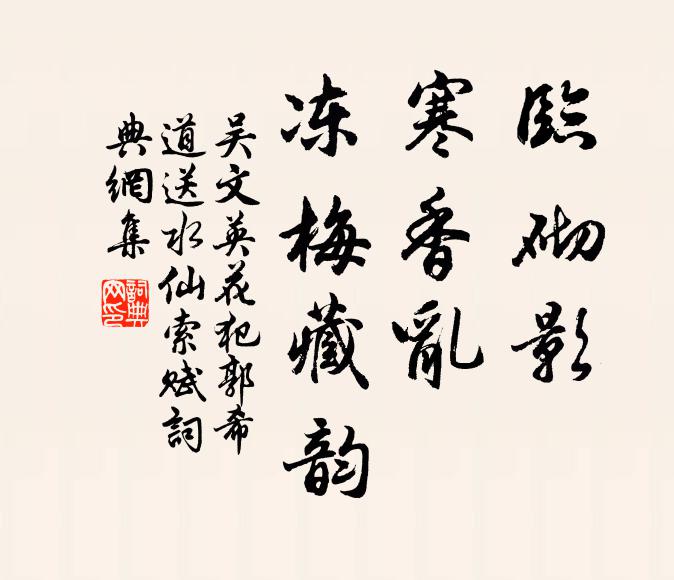 臨砌影
寒香亂
冻梅藏韵
吴文英花犯郭希
道送水仙索赋詞
典網集
詞典网印